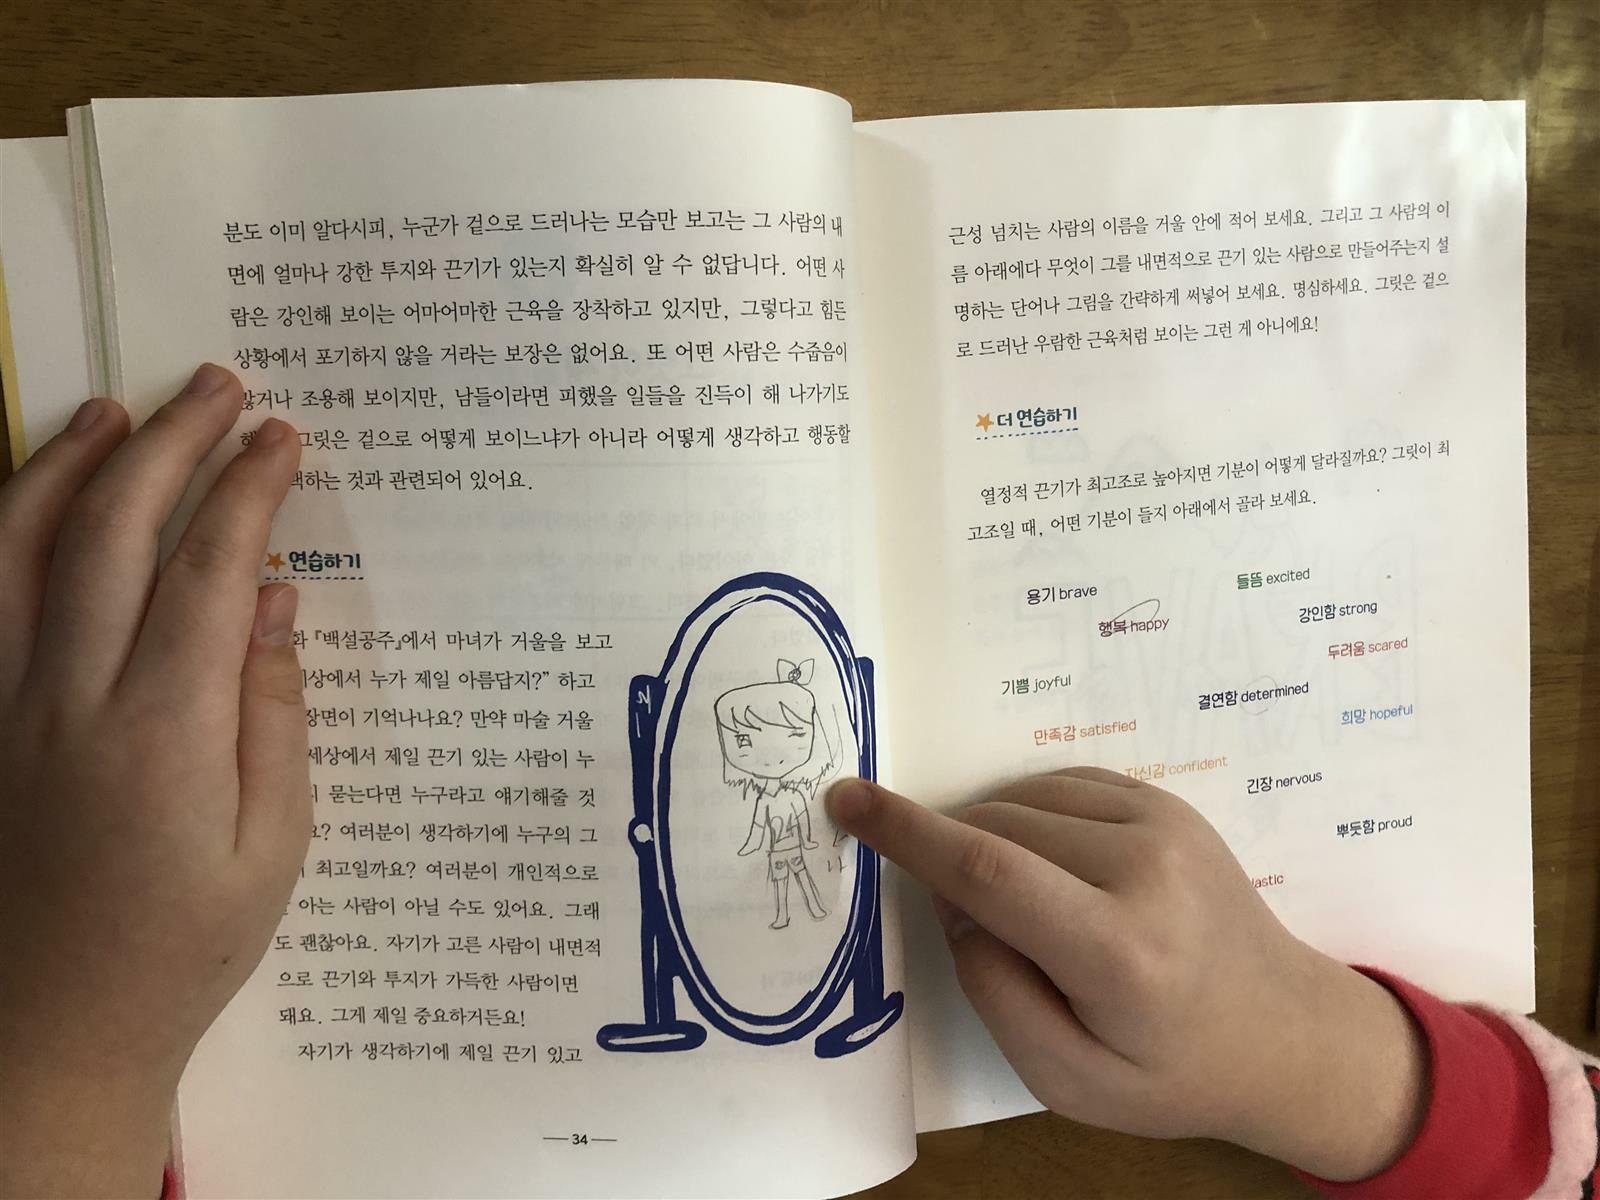 분도 이미 알다시피, 누군가 겉으로 드러나는 모습만 보고는 그 사람의 내
면에 얼마나 강한 투지와 끈기가 있는지 확실히 알 수 없답니다. 어떤 사
람은 강인해 보이는 어마어마한 근육을 장착하고 있지만, 그렇다고 힘든
상황에서 포기하지 않을 거라는 보장은 없어요. 또 어떤 사람은 수줍음이
많거나 조용해 보이지만, 남들이라면 피했을 일들을 진득이 해 나가기도
그릿은 겉으로 어떻게 보이느냐가 아니라 어떻게 생각하고 행동할
택하는 것과 관련되어 있어요.
연습하기
화 『백설공주』에서 마녀가 거울을 보고
세상에서 누가 제일 아름답지?” 하고
장면이 기억나나요? 만약 마술 거울
세상에서 제일 끈기 있는 사람이 누
묻는다면 누구라고 얘기해줄 것
요? 여러분이 생각하기에 누구의 그
최고일까요? 여러분이 개인적으로
아는 사람이 아닐 수도 있어요. 그래
도 괜찮아요. 자기가 고른 사람이 내면적
으로 끈기와 투지가 가득한 사람이면
돼요. 그게 제일 중요하거든요!
자기가 생각하기에 제일 끈기 있고
24
나
34
근성 넘치는 사람의 이름을 거울 안에 적어 보세요. 그리고 그 사람의 이
름 아래에다 무엇이 그를 내면적으로 끈기 있는 사람으로 만들어주는지 설
명하는 단어나 그림을 간략하게 써넣어 보세요. 명심하세요. 그릿은 겉으
로 드러난 우람한 근육처럼 보이는 그런 게 아니에요!
더 연습하기
열정적 끈기가 최고조로 높아지면 기분이 어떻게 달라질까요? 그릿이 최
고조일 때, 어떤 기분이 들지 아래에서 골라 보세요.
용기 brave
들뜸 excited
행복 happy
강인함 strong
두려움 scared
기쁨 joyful
결연함 determined
희망 hopeful
만족감 satisfied
자신감 confident
긴장 nervous
뿌듯함 proud
lastic